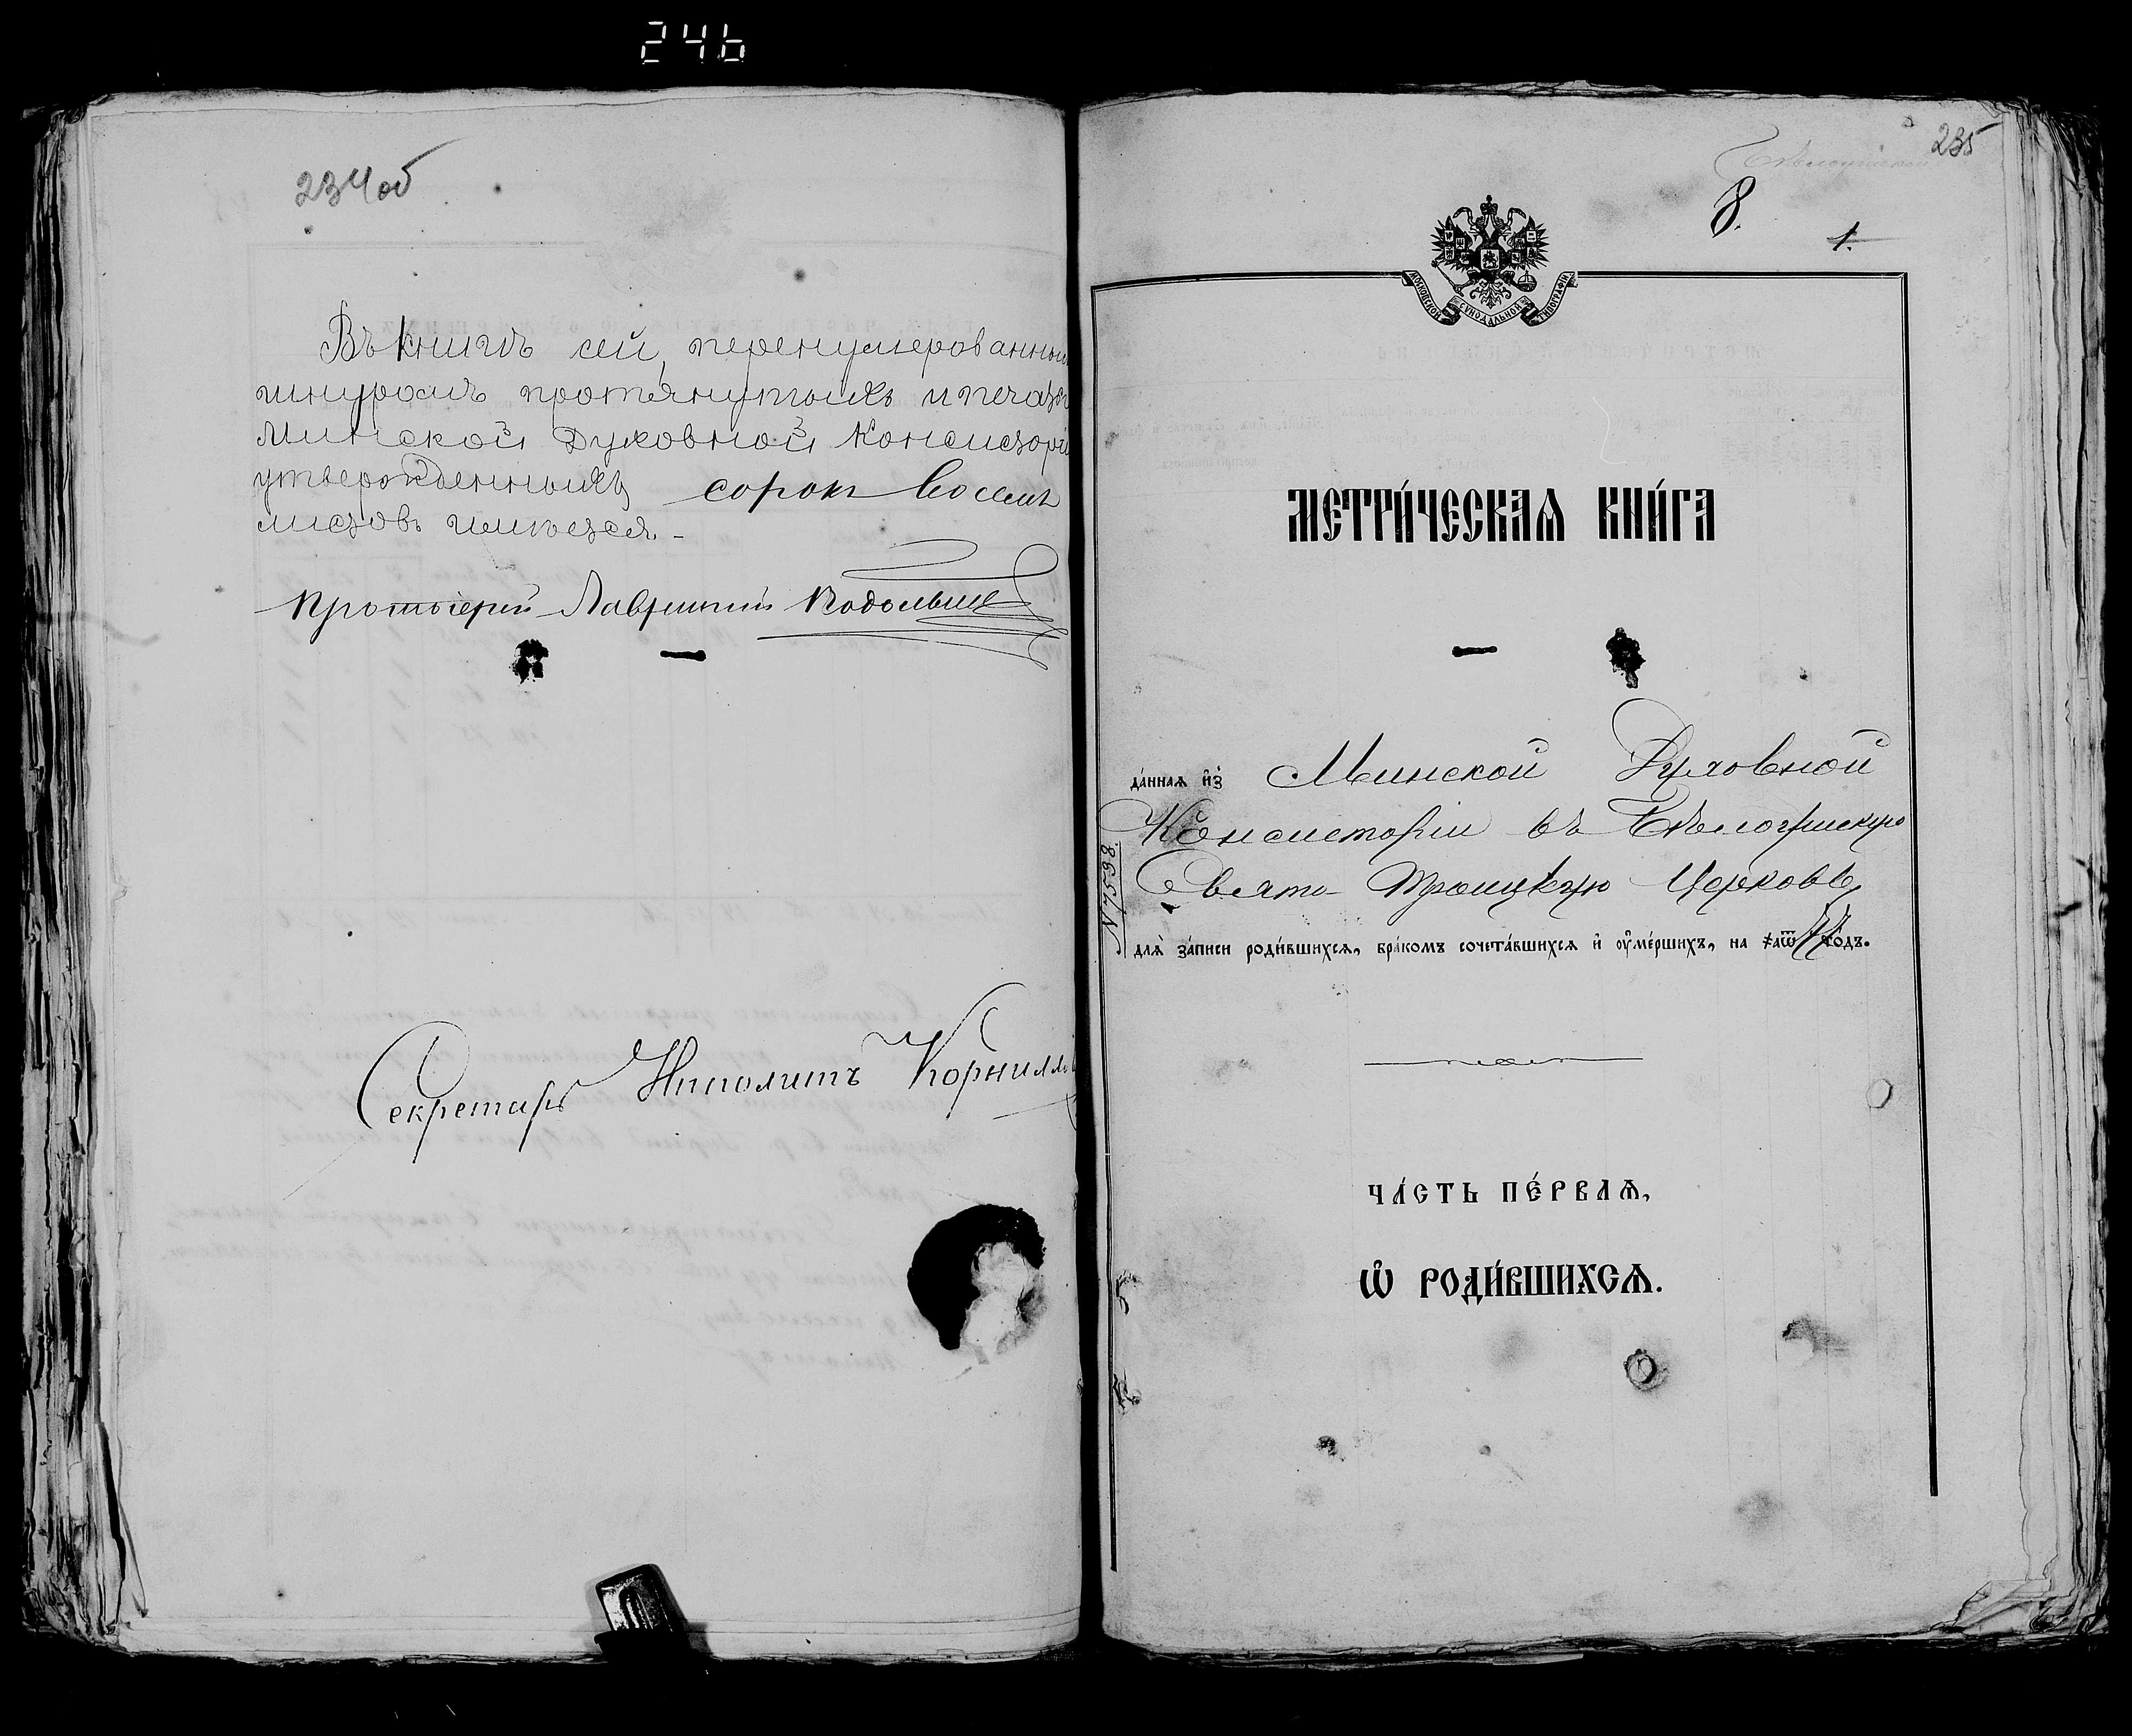 246
234об
Въ книгѣ сей, перенумерованныхъ
шнуромъ протянутыхъ и печатью
Минской Духовной Консисторіи
утвержденныхъ сорокъ восемь
листовъ имѣется.-
Протоіерей Лаврентій
Секретарь Ипполитъ Корнилло
235
8.
1.
МОСКОВСКОЙ СѴНОДАЛЬНОЙ ТИПОГРАФІИ
МЕТРИ́ЧЕСКАѦ КНИ́ГА
да́ннаѧ и҆з̾ Минской Духовной
Консисторіи въ
Свято-Троицкую Церковь
№ 7538
длѧ̀ за́писи роди́вшихсѧ, бра́комъ сочета́вшихсѧ и҆ ᲂу҆ме́ршихъ, на ҂аѿ77 го́дъ.
ЧА́СТЬ ПЕ́РВАѦ,
Ѽ РОДИ́ВШИХСѦ.